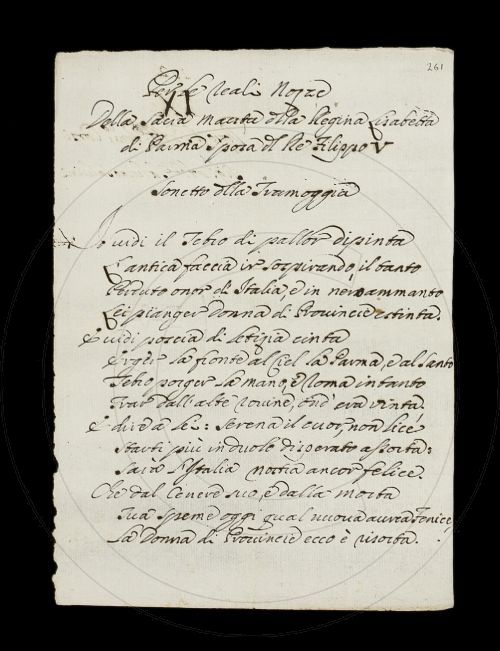 261
Per le Reali Nozze
Della Sacra Maestà della Regina Elisabetta
di Parma Sposa del Re Filippo V
Sonetto della Tramoggia
Io vidi il Tebro di pallor dipinta
L'antica faccia ir sospirando il tanto
Perduto onor di Italia, e in nero ammanto
Lei pianger Donna di Provincie estinta.
E vidi poscia di letizia cinta
Erger la fronte al Ciel la Parma, e al Santo
Tebro porger la mano, e Roma intanto
Trar dall'alte rovine, ond' era vinta.
E dire a lei: Serena il cuor, non lice
Starti più in duolo disperato assorta:
Sarà l'Italia nostra ancor felice.
Che dal Cenere suo, e dalla morta
Sua speme oggi qual nuova aurea Fenice,
La Donna di Provincie ecco è risorta.